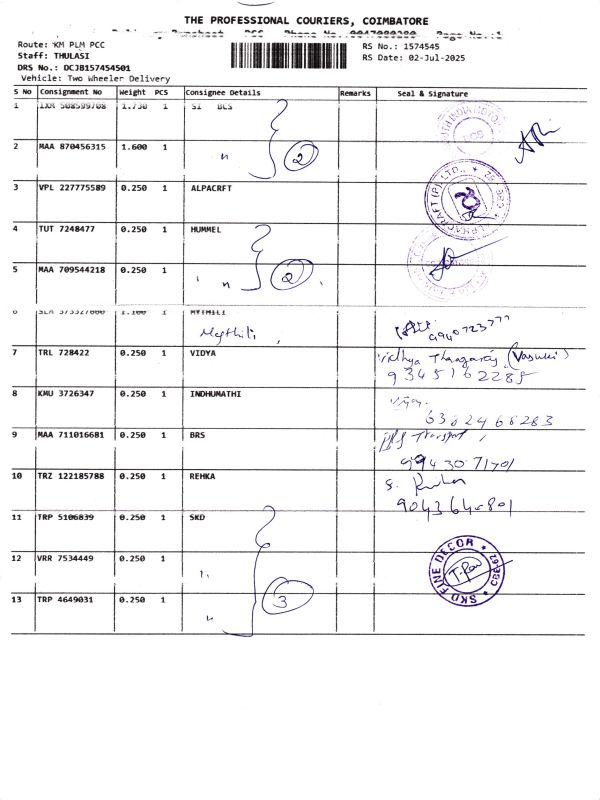 THE PROFESSIONAL COURIERS, COIMBATORE
Delivery Runsheet PCC Phone No. Page No.:1
Route: KM PLM PCC
Staff: THULASI
DRS No.: DCJB157454501
Vehicle: Two Wheeler Delivery
RS No.: 1574545
RS Date: 02-Jul-2025
S No Consignment No Weight PCS Consignee Details Remarks Seal & Signature
1 1.730 1 SI BCS
2 MAA 870456315 1.600 1 " 2
3 VPL 227775589 0.250 1 ALPACRFT
4 TUT 7248477 0.250 1 HUMMEL
5 MAA 709544218 0.250 1 " 2
6 1.100 1 MYTHILI
Mythili,
7 TRL 728422 0.250 1 VIDYA Vidhya Thangaraj (Vasuki)
9345162285
8 KMU 3726347 0.250 1 INDHUMATHI
6382468283
9 MAA 711016681 0.250 1 BRS BRS Transport
9943071701
10 TRZ 122185788 0.250 1 REHKA
11 TRP 5106839 0.250 1 SKD
12 VRR 7534449 0.250 1 "
13 TRP 4649031 0.250 1 " 3
SKD FINE DECOR * CBE-62 *